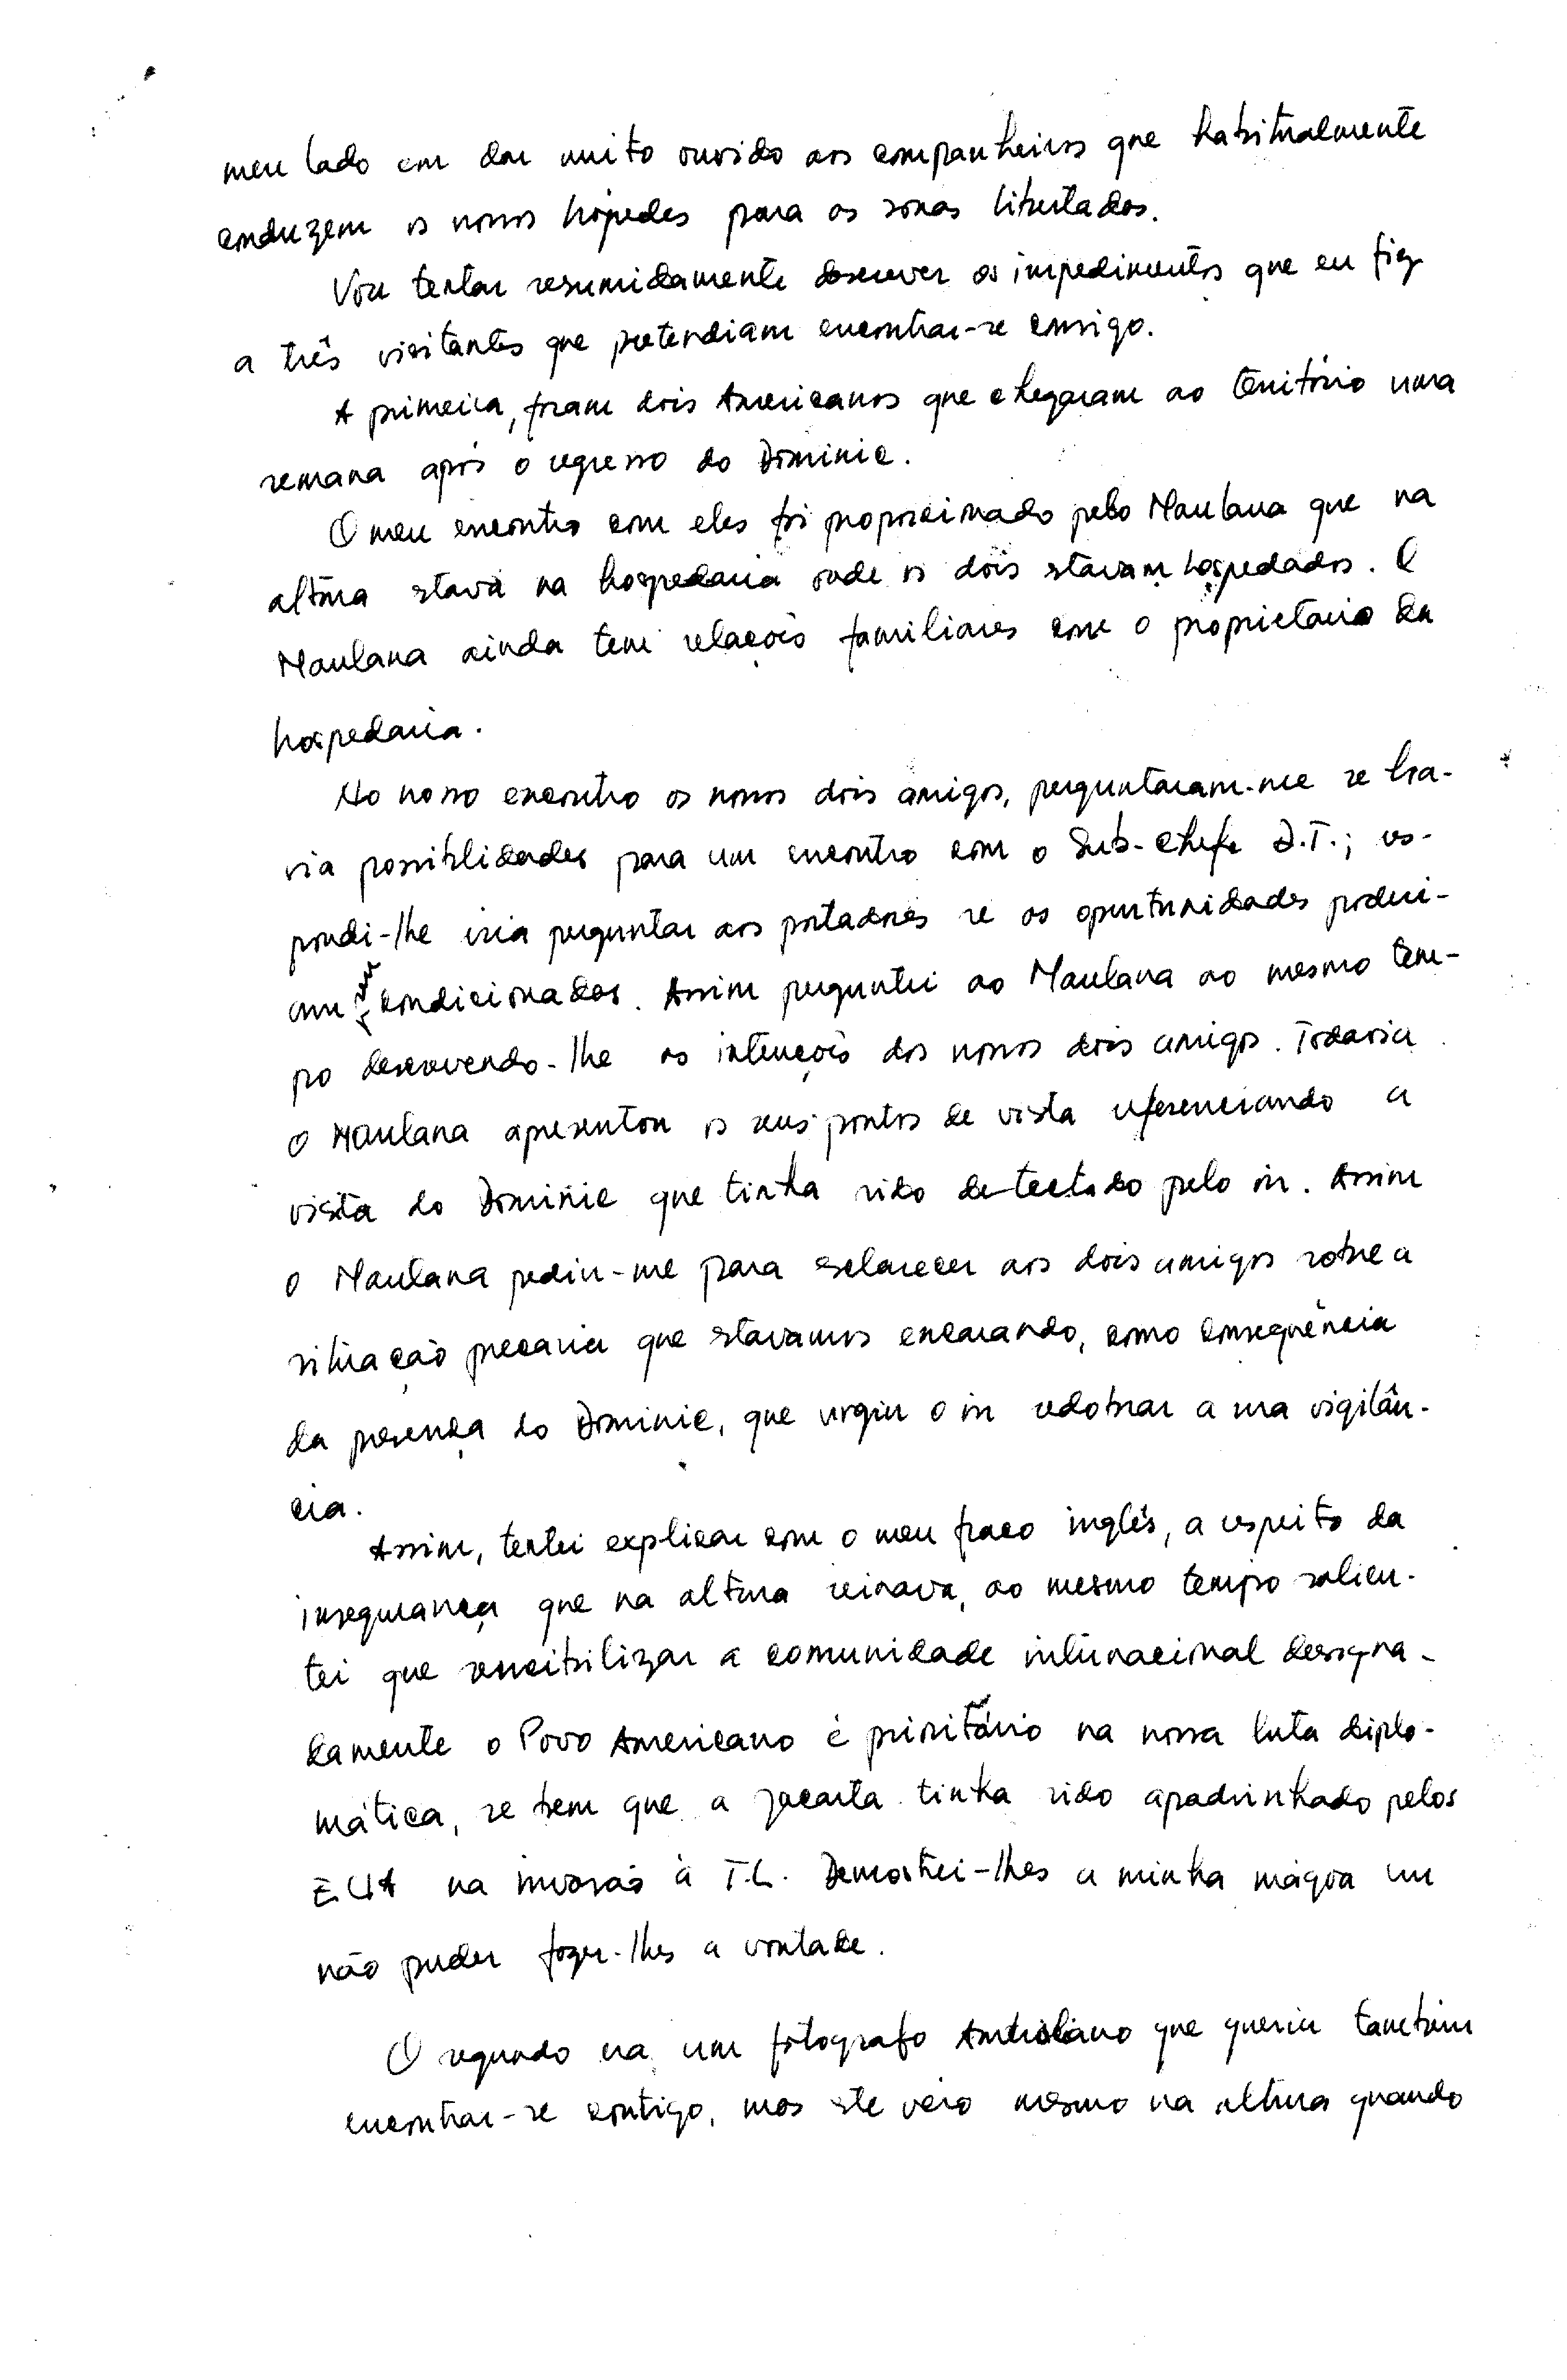 meu lado em dar muito ouvido aos companheiros que habitualmente
conduzem os nossos hópedes para as zonas libertadas.
Vou tentar resumidamente descrever os impedimentos que eu fiz
a três visitantes que pretendiam encontrar-se consigo.
A primeira, foram dois Americanos que chegaram ao território uma
semana após o regresso do Dominic.
O meu encontro com eles foi proporcionado pelo Maulana que na
altura stava na hospedaria onde os dois stavam hospedados. O
Maulana ainda tem relações familiares com o proprietario da
hospedaria.
No nosso encontro os nossos dois amigos, perguntaram-me se ha-
via possibilidades para um encontro com o Sub-chefe D.T.; res-
pondi-lhe iria perguntar aos portadores se as oportunidades poderi-
am ser condicionadas. Assim perguntei ao Maulana ao mesmo tem-
po descrevendo-lhe as intenções dos nossos dois amigos. Todavia
o Maulana apresentou os seus pontos de vista referenciando a
visita do Dominic que tinha sido detectado pelo in. Assim
o Maulana pediu-me para esclarecer aos dois amigos sobre a
situação precaria que stavamos encarando, como consequência
da presença do Dominic, que urgiu o in redobrar a sua vigilân-
cia.
Assim, tentei explicar com o meu fraco inglês, a respeito da
insegurança que na altura reinava, ao mesmo tempo salien-
tei que sencibilizar a comunidade internacional designa-
damente o Povo Americano é prioritário na nossa luta diplo-
mática, se bem que a Jacarta tinha sido apadrinhado pelos
EUA na invasão à T.L. Demostrei-lhes a minha mágoa em
não puder fazer-lhes a vontade.
O segundo era um fotografo Australiano que queria também
encontrar-se contigo, mas ste veio mesmo na altura quando